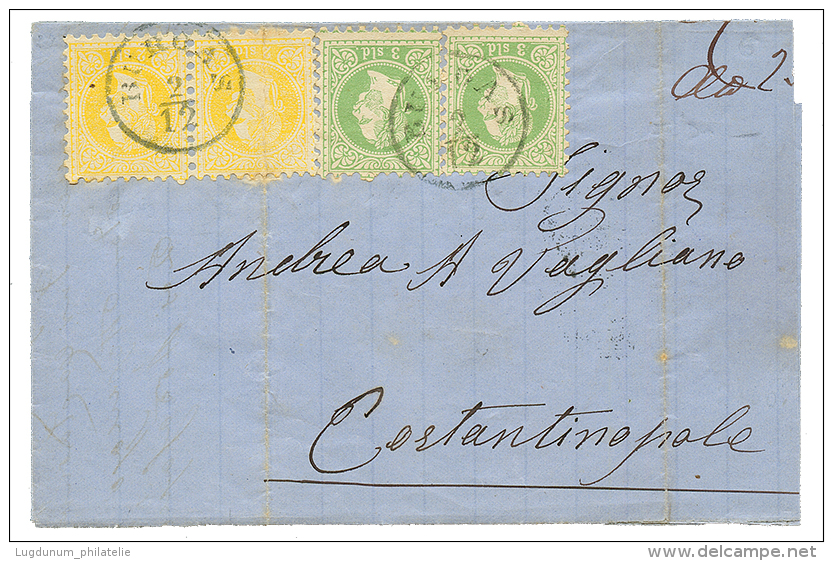 BURGAS
2/12
3 sld
3 sld
BURGAS
2/12
Signor
Andrea A Vagliano
Costantinopole
Lugdunum_philatelie
www.delcampe.net